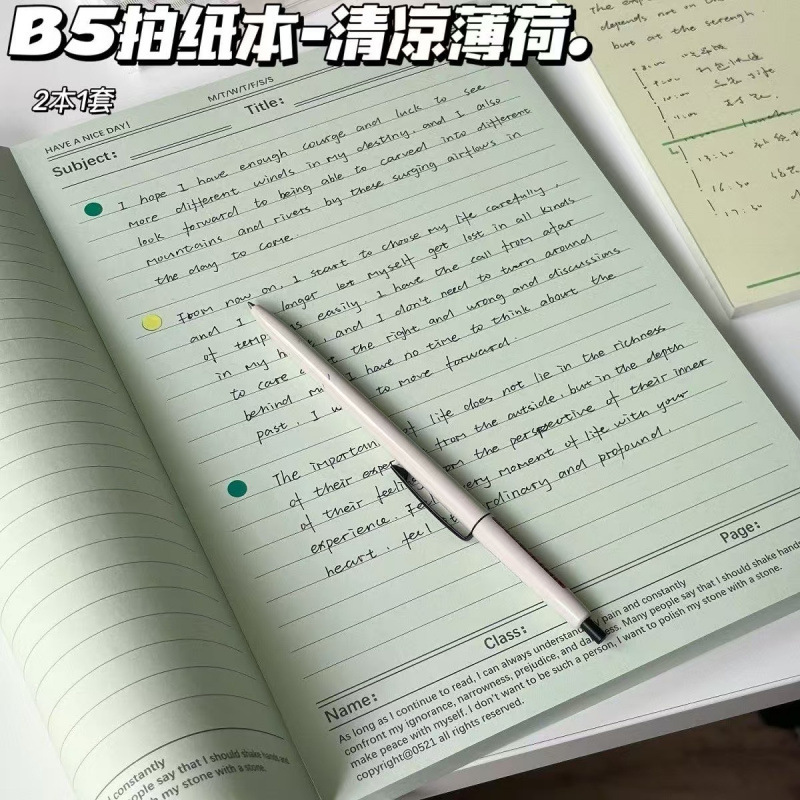 B5拍纸本-清凉薄荷.
2本1套
HAVE A NICE DAY!
M/T/W/T/F/S/S
Subject:
Title:
I hope I have enough courge and luck to see
more different winds in my destiny, and I also
look forward to being able to carved into different
mountains and rivers by these surging airflows in
the day to come.
From now on, I start to choose my life carefully,
and I longer let myself get lost in all kinds
of temp s easily. I have the call from afar
in my h , and I don't need to turn around
to care the right and wrong and discussions
behind m I have no time to think about the
past, I w to move forward.
The importan of life does not lie in the richness
of their expe from the outside, but in the depth
of their feelin from the perspective of their inner
experience. Feel every moment of life with your
heart, feel t ordinary and profound.
Page:
Class:
Name:
As long as I continue to read, I can always understand pain and constantly
confront my ignorance, narrowness, prejudice, and da ess. Many people say that I should shake hands
make peace with myself. I don't want to be such a person, I want to polish my stone with a stone.
copyright@0521 all rights reserved.
constantly
ople say that I should shake hands and
sh my stone with a stone.
depends not on
but at the strengh.
13:30
16:30
17:30